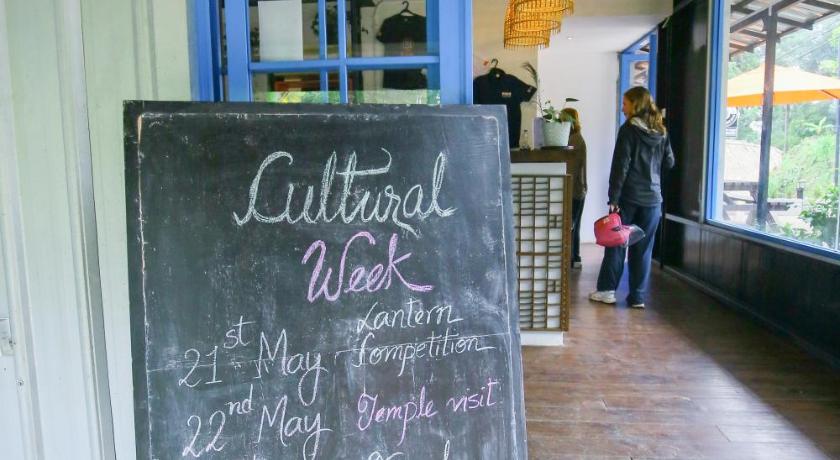 Cultural
Week
21st May Lantern
Competition
22nd May Temple visit